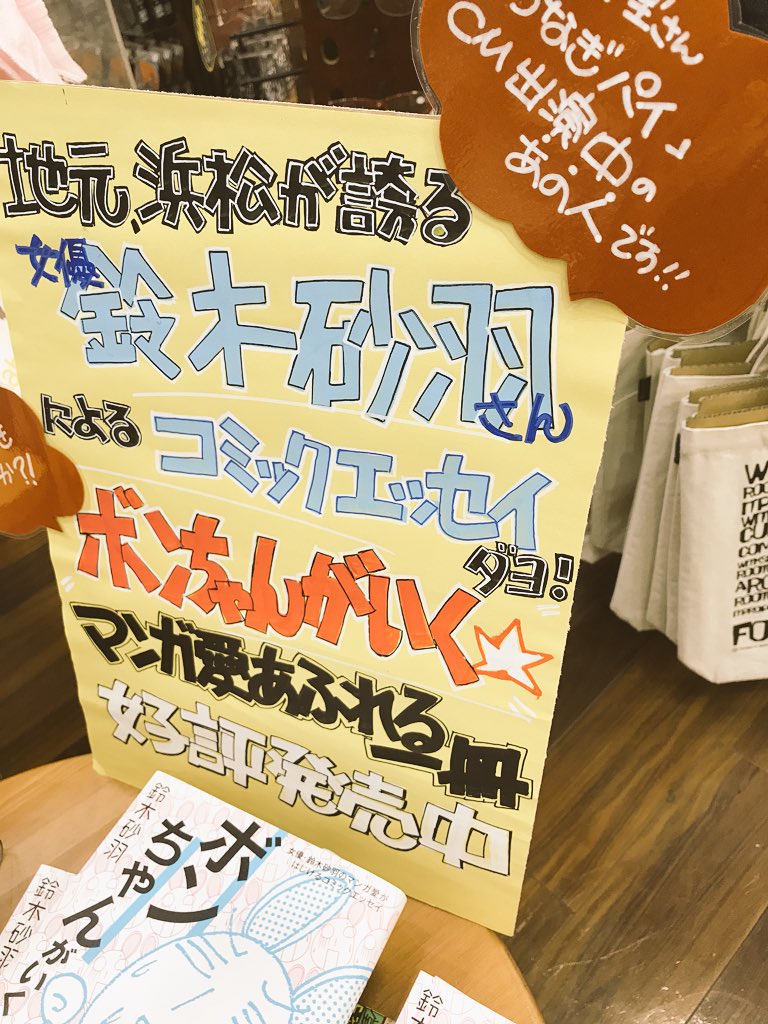 さん
うなぎパイ」
CM出演中の
あの人です!!
地元、浜松が誇る
女優
鈴木砂羽
さん
による
コミックエッセイ
ダヨ!
ボンちゃんがいく☆
マンガ愛あふれる一冊
好評発売中
も
か?!
鈴木砂羽
ボンちゃんがいく
女優・鈴木砂羽のマンガ愛が
はじけるコミックエッセイ
鈴木砂羽
がいく
鈴木
FO